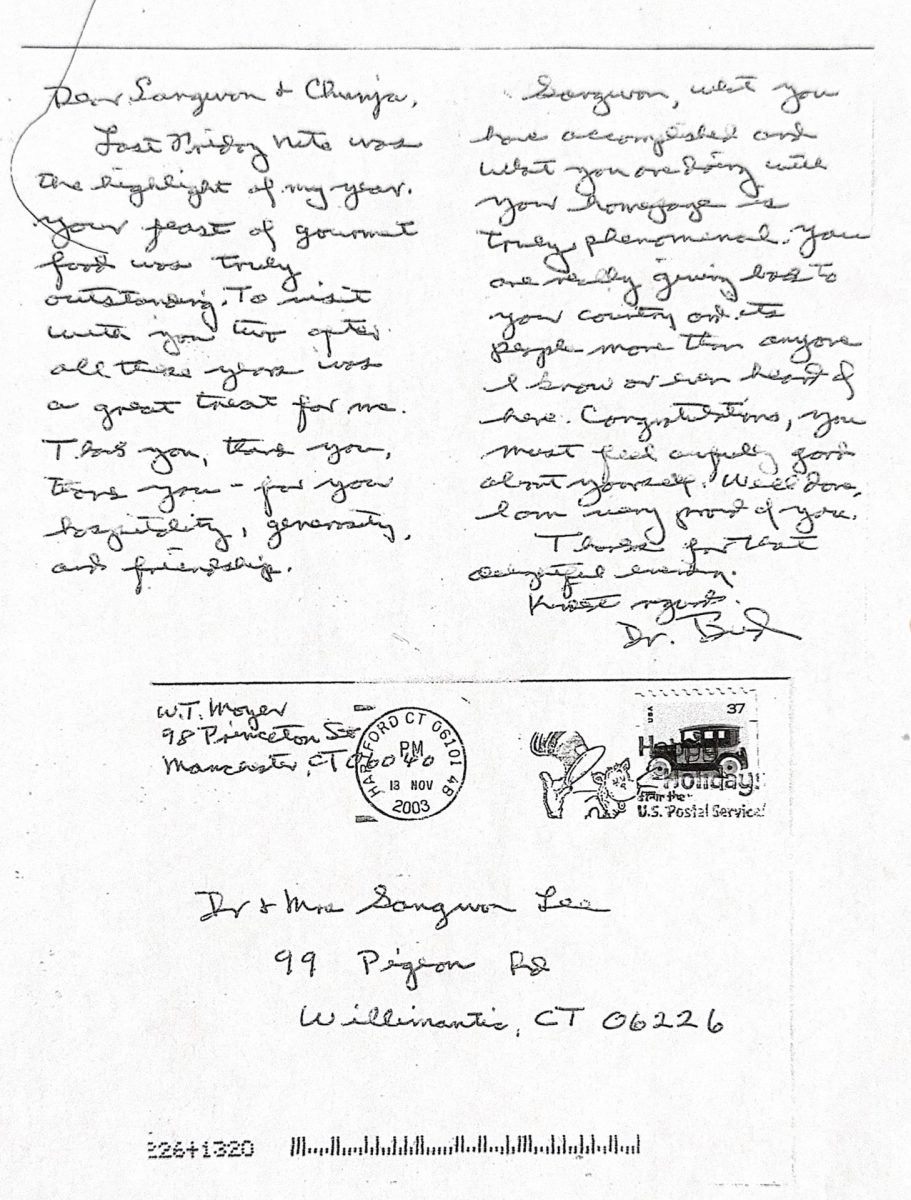 Dear Sangwon & Chunja,
Last Friday nite was
the highlight of my year.
Your feast of gourmet
food was truly
outstanding. To visit
with you two after
all these years was
a great treat for me.
Thank you, thank you,
thank you - for your
hospitality, generosity,
and friendship.
Sangwon, what you
have accomplished and
what you are doing with
your homepage is
truly phenomenal. You
are really giving back to
your country and its
people more than anyone
I know or even heard of
here. Congratulations, you
must feel awfully good
about yourself. Well done,
I am very proud of you.
Thanks for that
delightful evening.
Kindest regards.
Dr.
W.T. Moyer
98 Princeton St
Manchester, CT 06040
HARTFORD CT 06101 48
PM
13 NOV
2003
USA
37
Happy
Holiday!
from the
U.S. Postal Service
Dr & Mrs Sangwon Lee
99 Pigeon Rd
Willimantic, CT 06226
226+1320